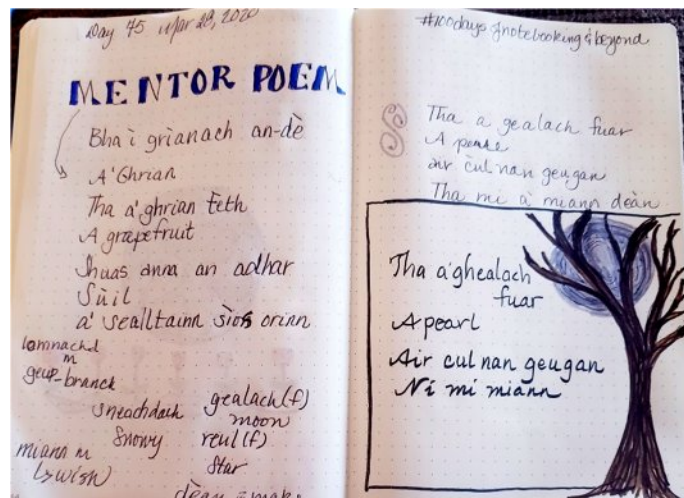 Day 75 Mar 28, 2020
MENTOR POEM
Bha i grianach an-dè
A' Ghrian
Tha a' ghrian teth
A grapefruit
Shuas anns an adhar
Sùil
a' sealltainn sìos orinn
lomnachd
m
geug-branch
sneachdach
snowy
gealach (f)
moon
reul (f)
star
miann m
(>wish)
dèan = make
#100days of notebooking & beyond
Tha a gealach fuar
A pearl
air cùl nan geugan
Tha mi a' miann dèan
Tha a' ghealach
fuar
A pearl
Air cul nan geugan
Ni mi miann